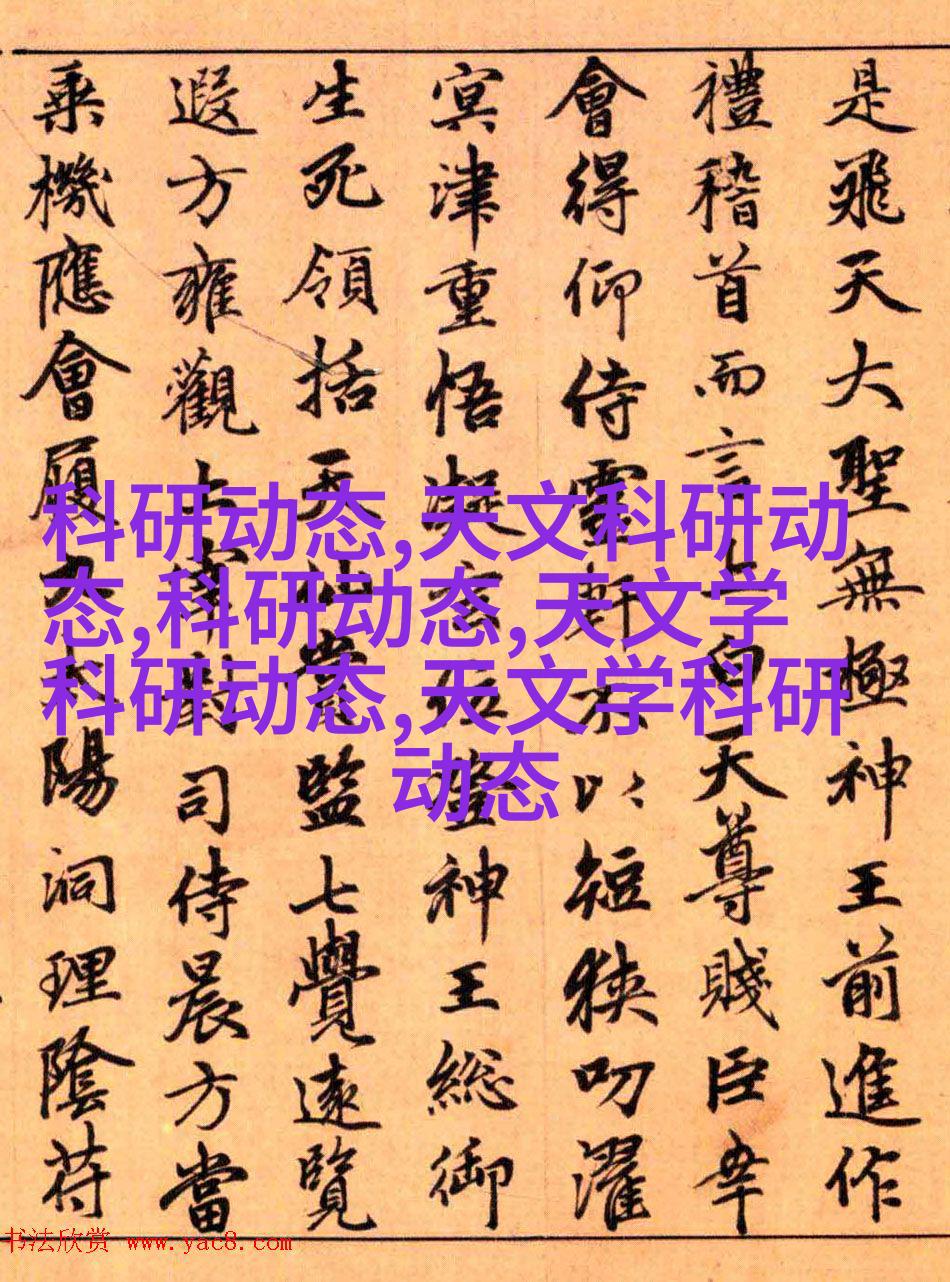 是飛天大聖無極神王前進作
禮稽首而言上白天尊賤臣幸
會得仰侍靈軒不以短狹叨濯
冥津重悟凝玄位登神王総御
生死領括天仙監七覺遠覽
遐方雍觀上宰對司侍晨方當
乘機應會履陽洞理陰苻
科研动态,天文科研动
态,科研动态,天文学
科研动态,天文学科研
动态
书法欣赏 www.yac8.com